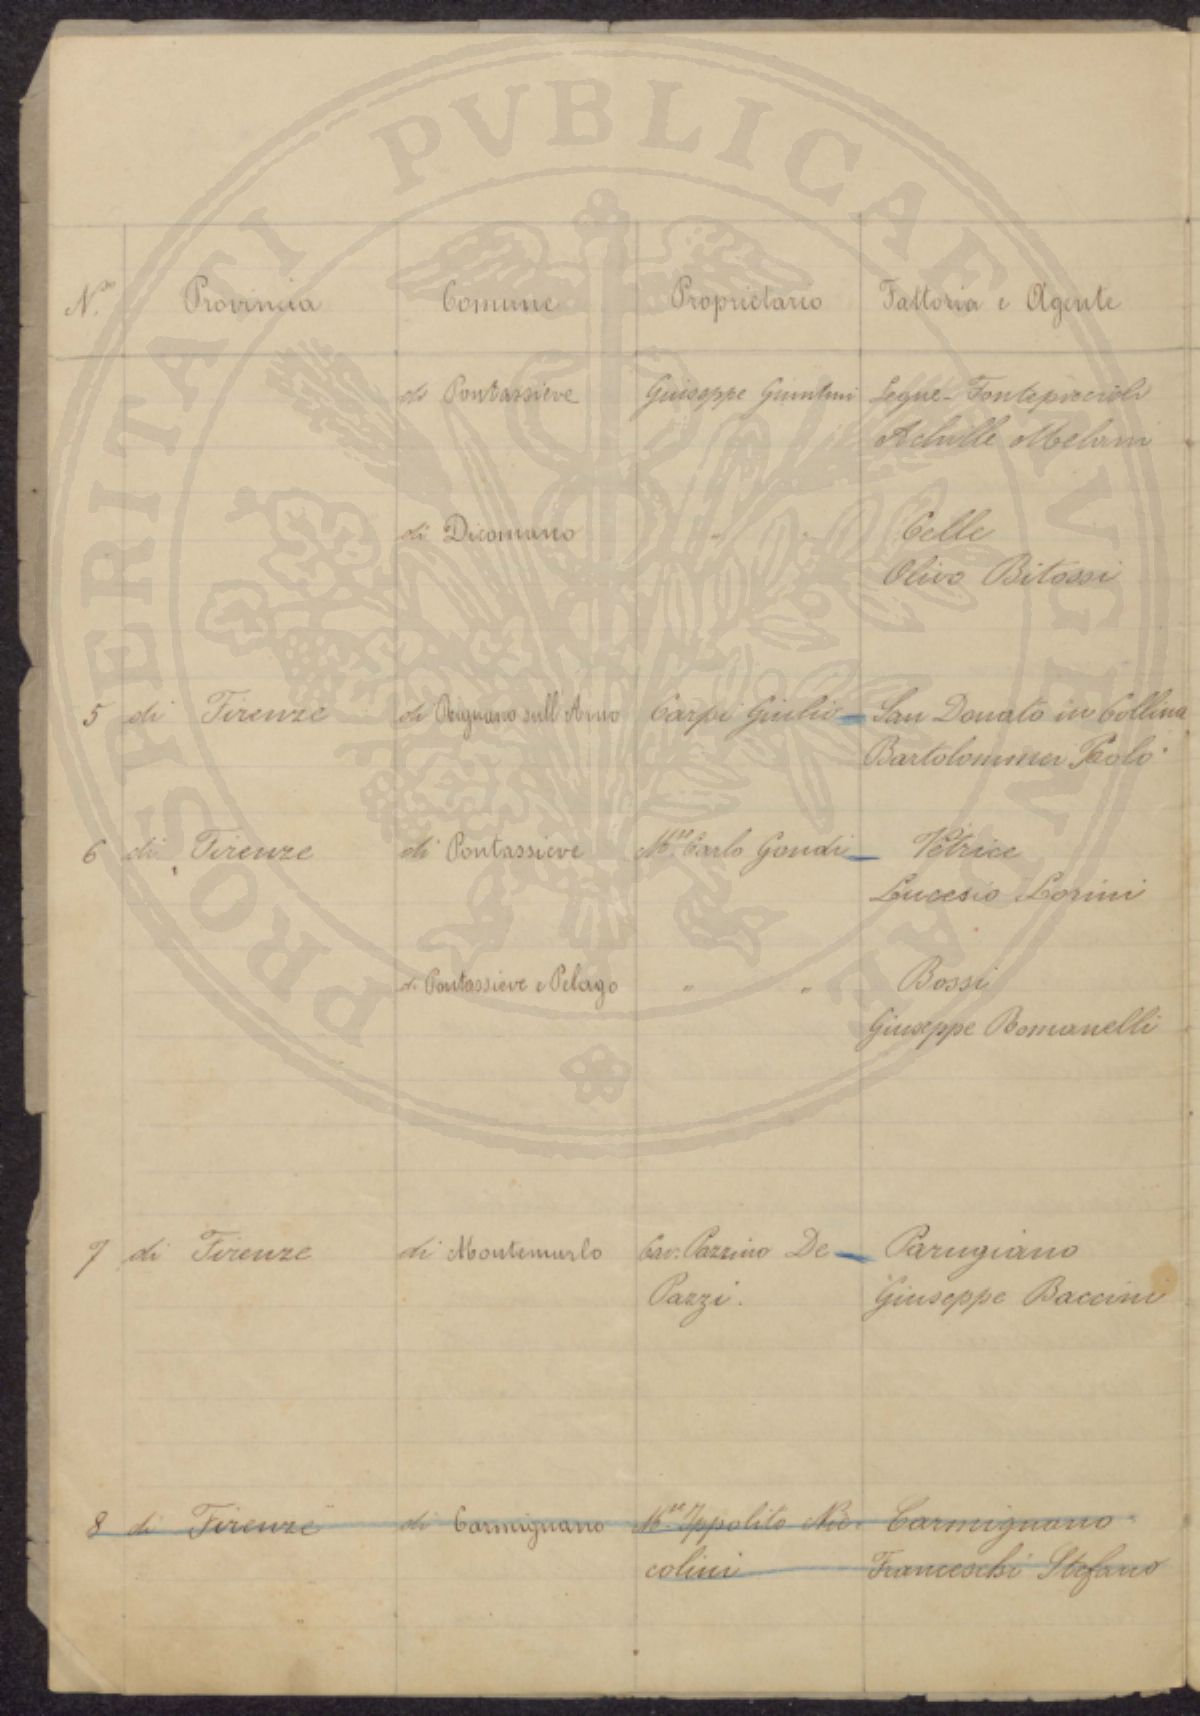 PROSPERITATI PVBLICAE AVGENDAE
N.ro Provincia Comune Proprietario Fattoria e Agente
di Pontassieve Giuseppe Giuntini Segue - Fontepiccioli
Achille Melani
di Dicomano " " Celle
Olivo Bitossi
5 di Firenze di Rignano sull'Arno Carpi Giulio San Donato in Collina
Bartolommei Paolo
6 di Firenze di Pontassieve M.se Carlo Gondi Vetrice
Lucesio Lorini
di Pontassieve e Pelago " " Bossi
Giuseppe Romanelli
7 di Firenze di Montemurlo Cav. Pazzino De Parugiano
Pazzi. Giuseppe Baccini
8 di Firenze di Carmignano M.se Ippolito Nic- Carmignano
colini Franceschi Stefano